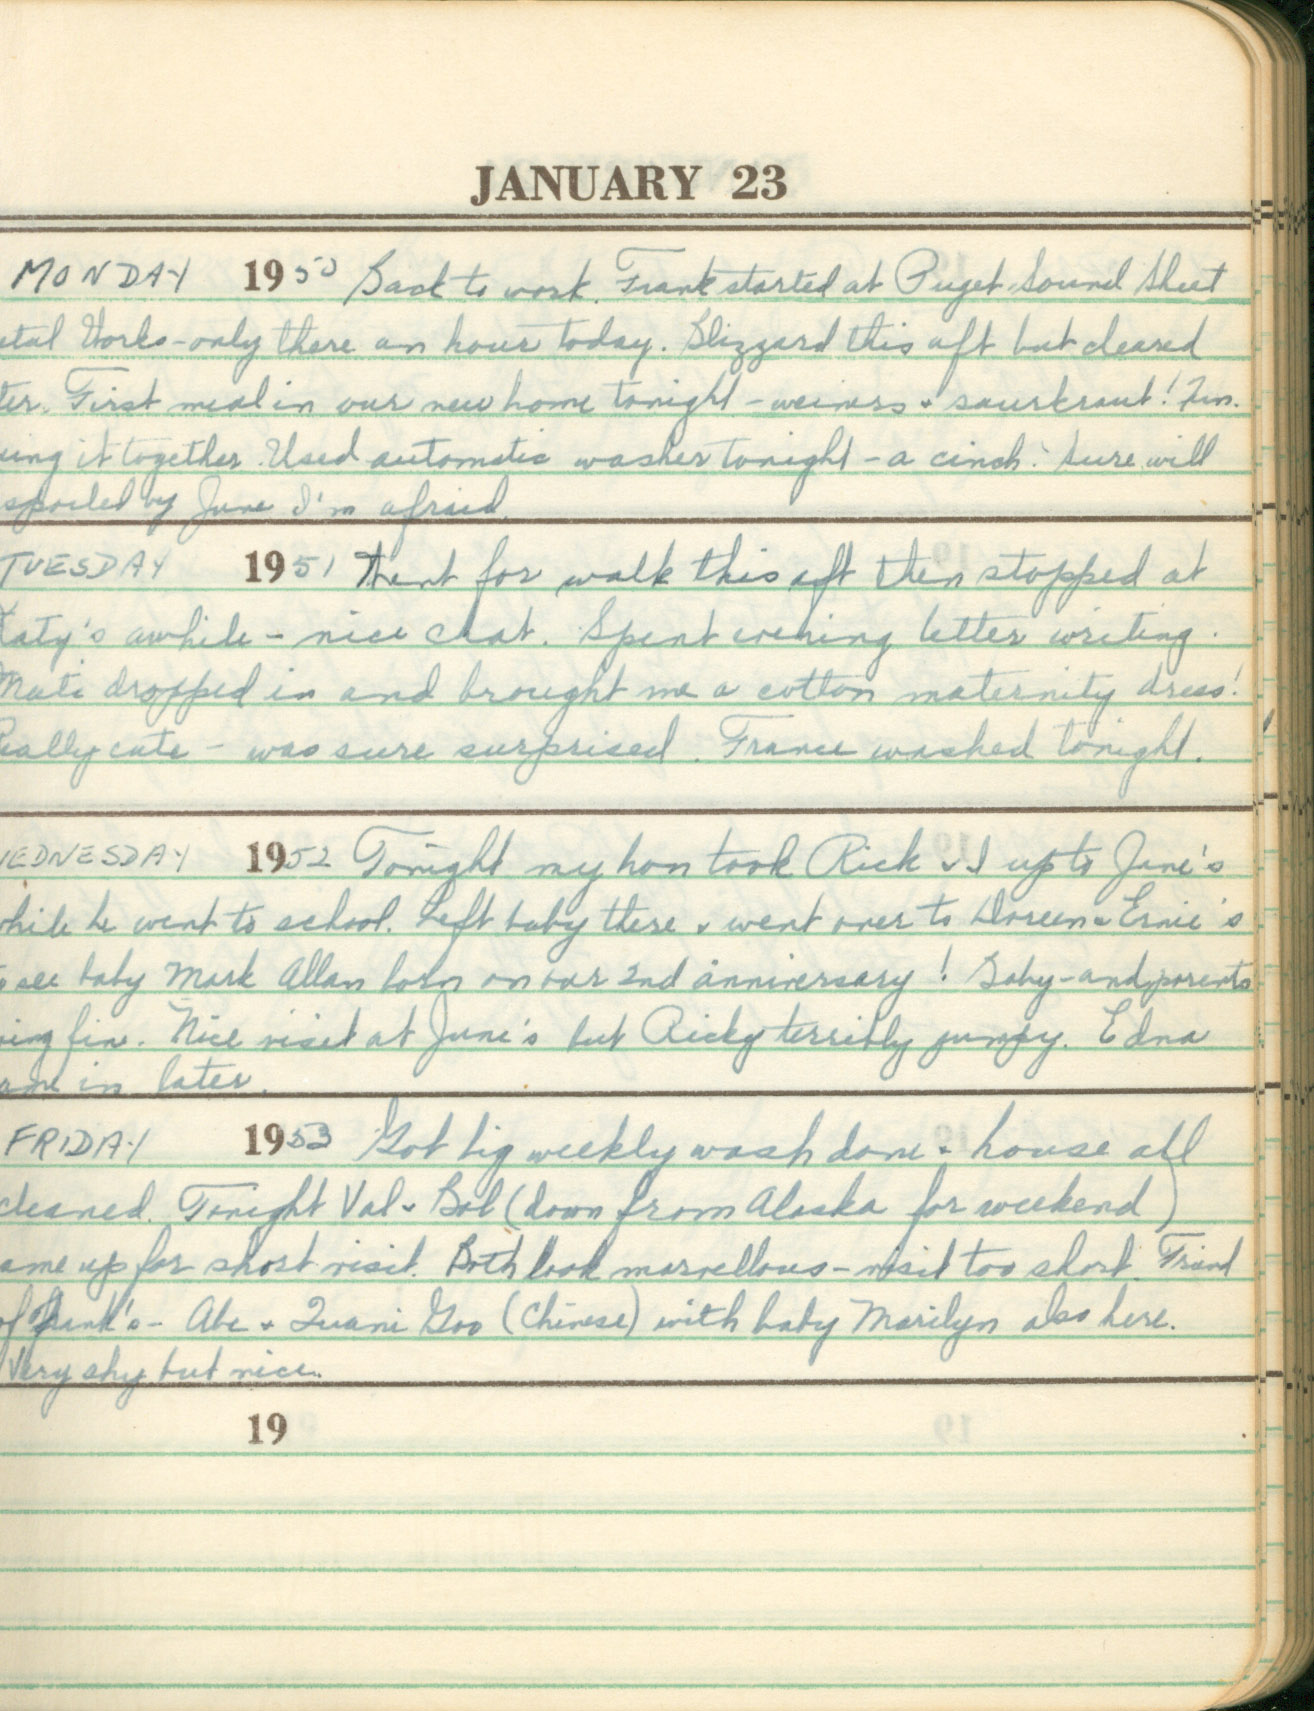 JANUARY 23
MONDAY 1950 Back to work. Frank started at Puget Sound Sheet
etal Works-only there an hour today. Blizzard this aft but cleared
ter. First meal in our new home tonight - weiners + saurkraut! Fun.
ing it together. Used automatic washer tonight - a cinch! Sure will
spoiled by June I'm afraid.
TUESDAY 1951 Went for walk this aft then stopped at
Katy's awhile - nice chat. Spent evening letter writing.
dropped in and brought me a cotton maternity dress!
Really cute - was sure surprised. France washed tonight.
WEDNESDAY 1952 Tonight my hon took Rick + I up to June's
while he went to school. Left baby there + went over to Doreen + Ernie's
to see baby Mark Allan born on our 2nd anniversary! Baby-and parents
ing fine. Nice visit at June's but Ricky terribly jumpy. Edna
ame in later.
FRIDAY 1953 Got big weekly wash done + house all
cleaned. Tonight Val + Bob (down from Alaska for weekend)
ame up for short visit. Both look marvellous - visit too short. Friend
of Frank's - Abe + Goo (Chinese) with baby Marilyn also here.
Very shy but nice.
19